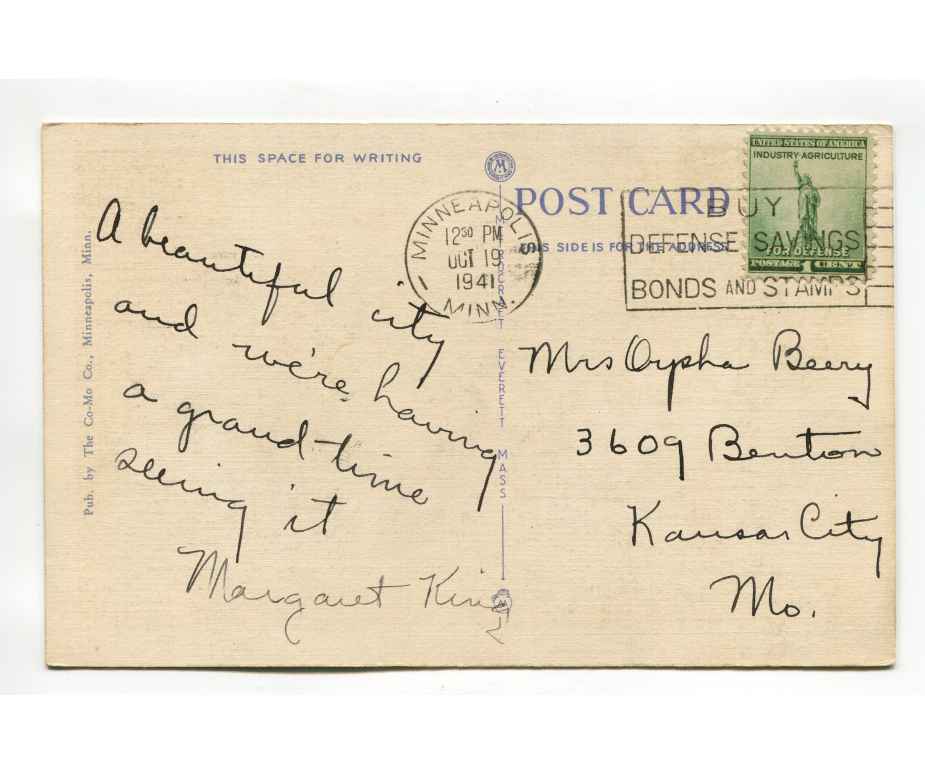 THIS SPACE FOR WRITING
A beautiful city
and we're having
a grand time
seeing it
Margaret King
Pub. by The Co-Mo Co., Minneapolis, Minn.
M
METROCRAFT EVERETT MASS
M
POST CARD
THIS SIDE IS FOR THE ADDRESS
MINNEAPOLIS
12 30 PM
OCT 19
1941
MINN.
BUY
DEFENSE SAVINGS
BONDS AND STAMPS
UNITED STATES OF AMERICA
INDUSTRY-AGRICULTURE
FOR DEFENSE
POSTAGE 1 CENT
Mrs Orpha Beery
3609 Benton
Kansas City
Mo.